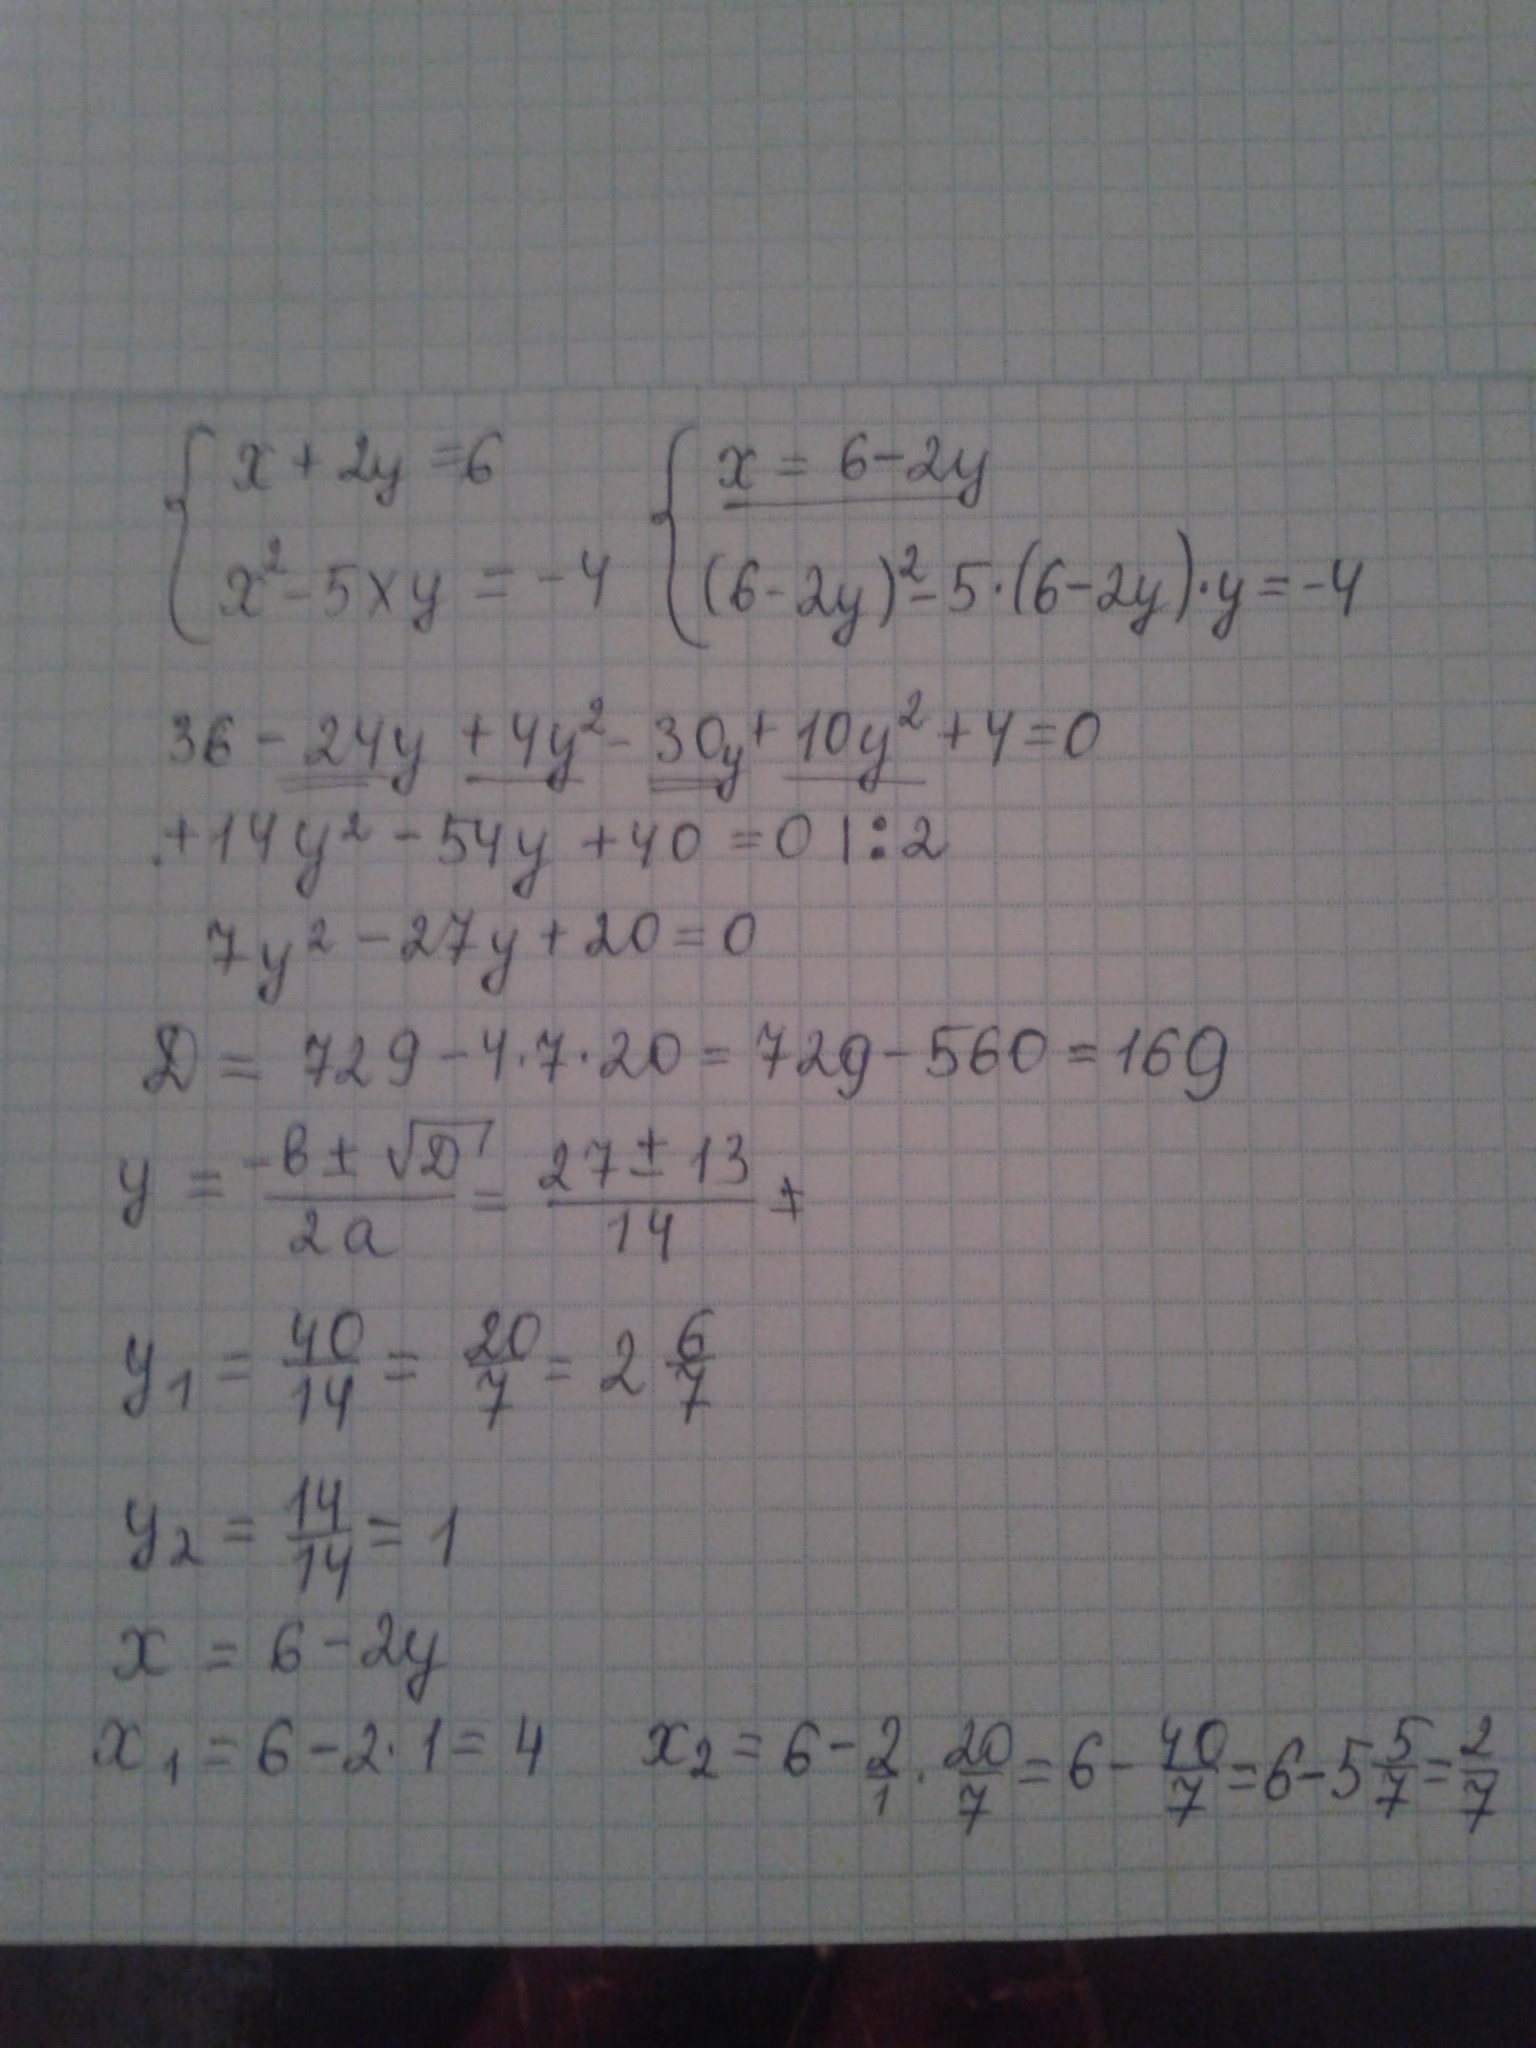 { x + 2y = 6   { x = 6 - 2y
{ x² - 5xy = -4   { (6 - 2y)² - 5·(6 - 2y)·y = -4
36 - 24y + 4y² - 30y + 10y² + 4 = 0
+14y² - 54y + 40 = 0 |:2
7y² - 27y + 20 = 0
D = 729 - 4·7·20 = 729 - 560 = 169
y = (-b ± √D)/(2a) = (27 ± 13)/14 ±
y₁ = 40/14 = 20/7 = 2 6/7
y₂ = 14/14 = 1
x = 6 - 2y
x₁ = 6 - 2·1 = 4   x₂ = 6 - 2/1 · 20/7 = 6 - 40/7 = 6 - 5 5/7 = 2/7